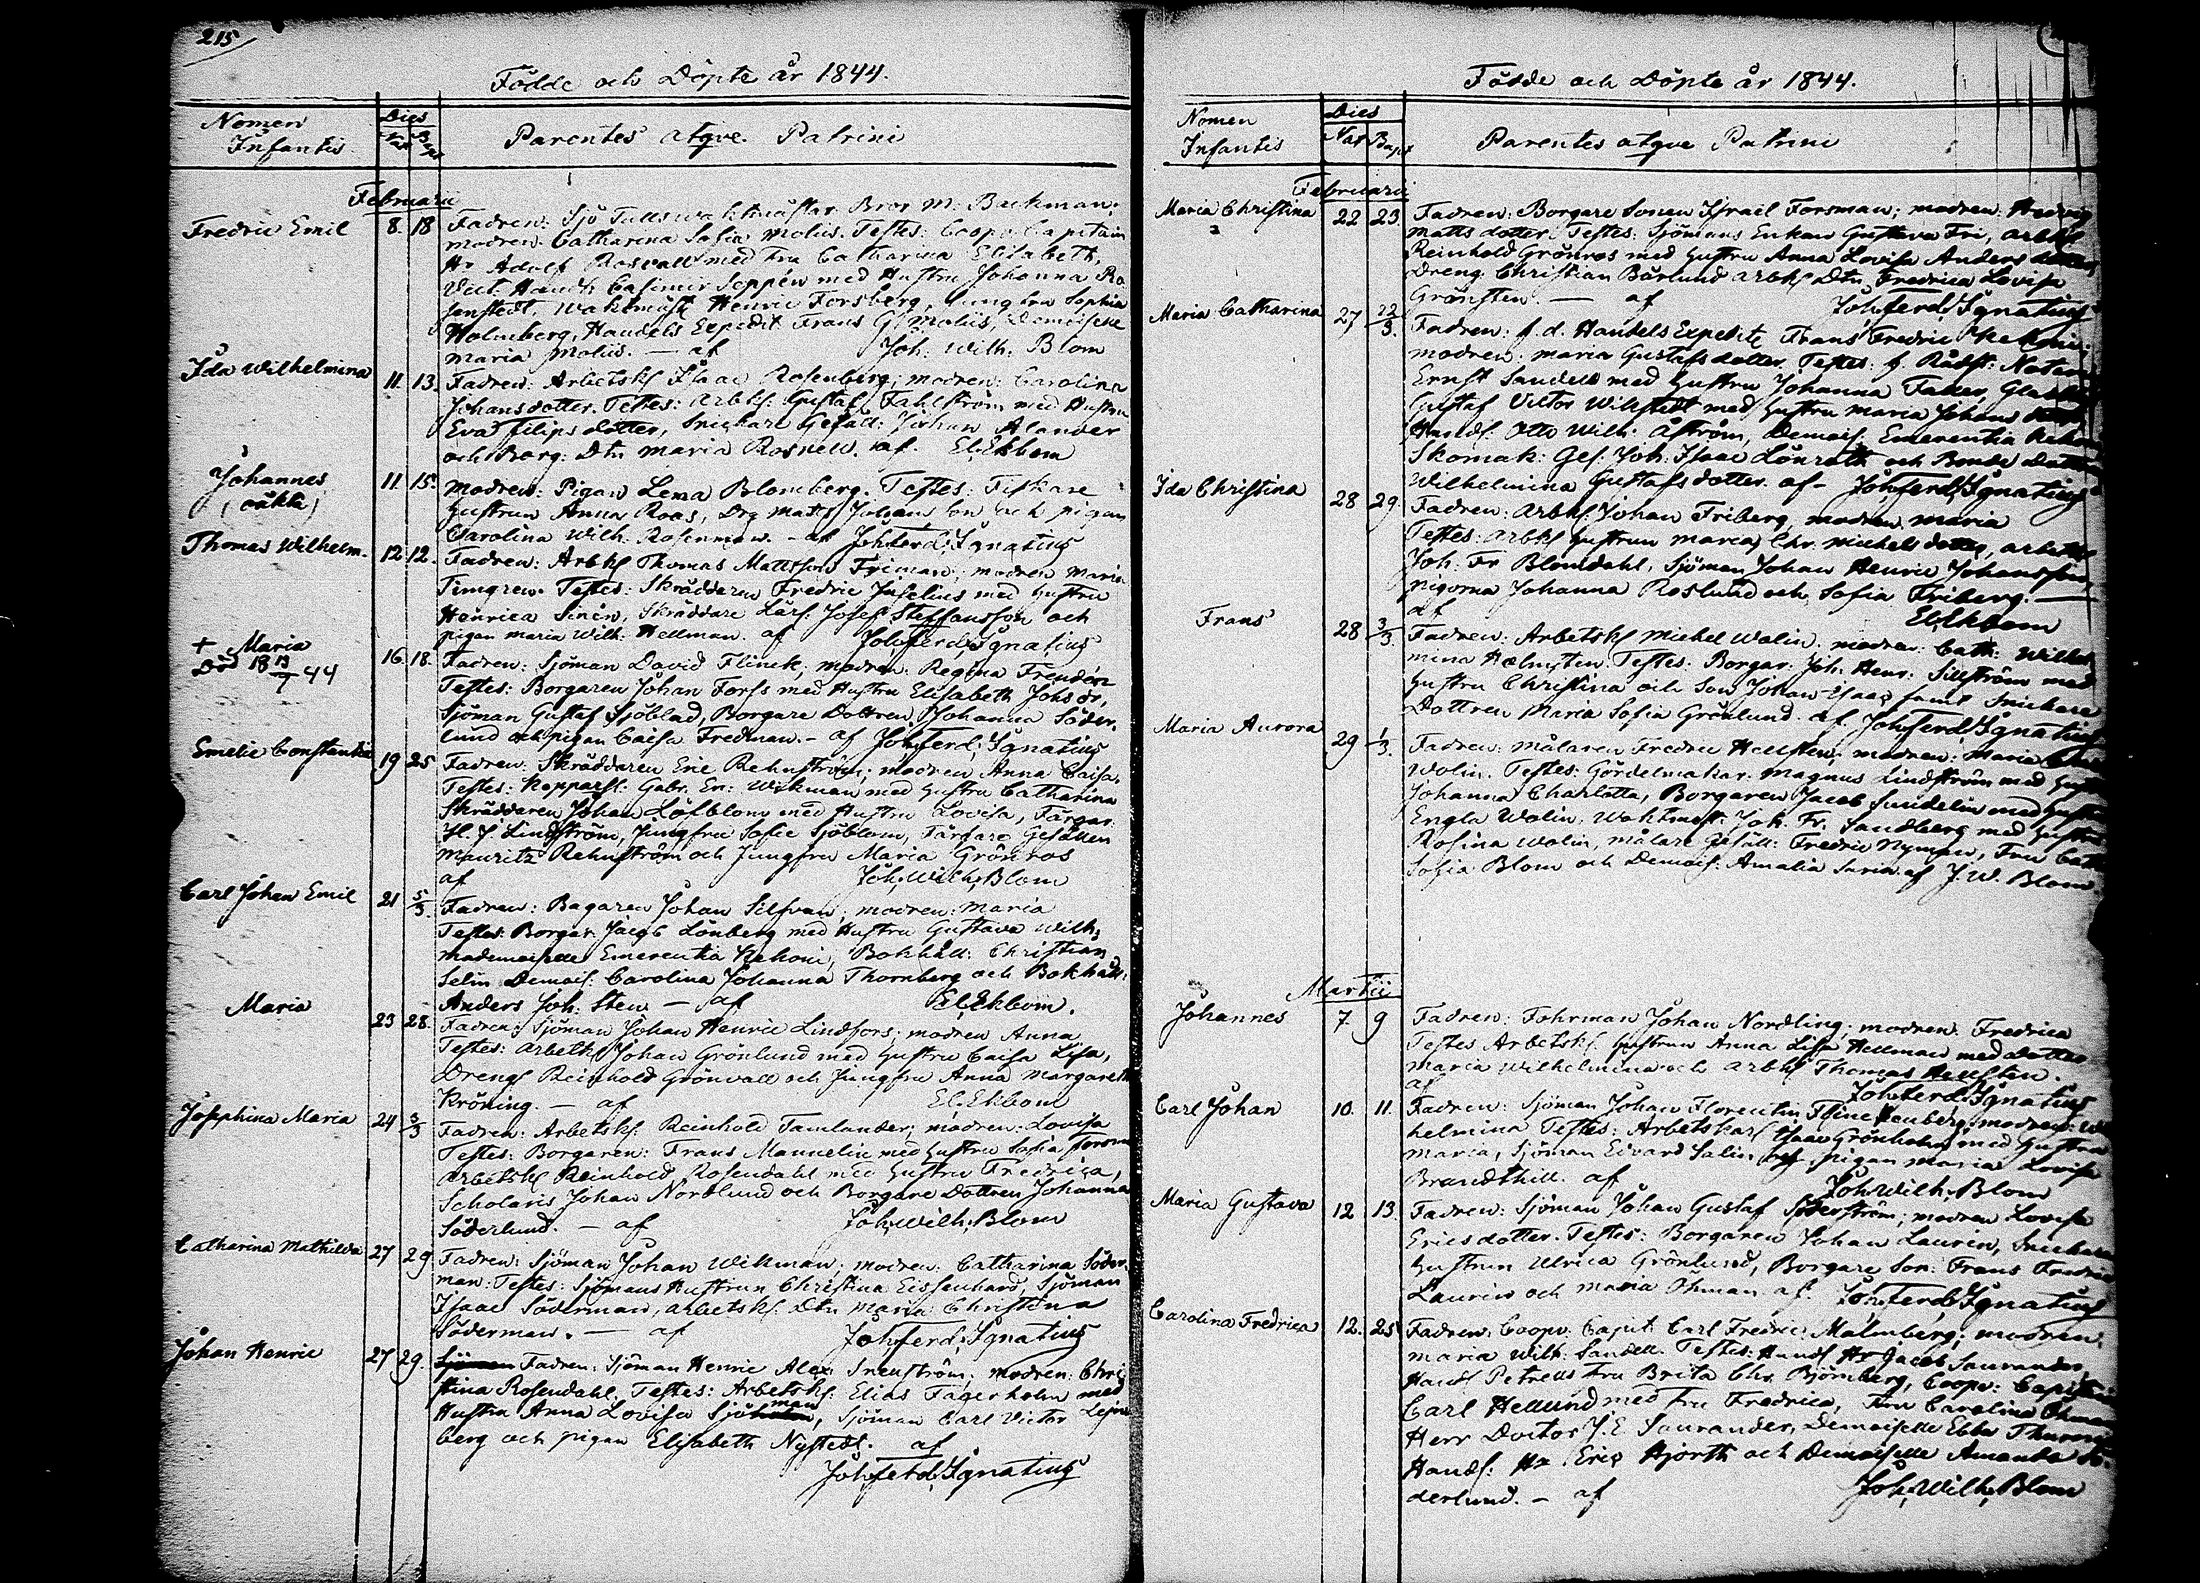 215
Födde och Döpte år 1844.
Nomen Infantis
Dies
Nat
Bapt
Parentes atqve Patrini
Februarii
Fredric Emil 8. 18 Fadren: Sjö Tullswaktmästar Bror M: Backman;
modren: Catharina Sofia Moliis. Testes: Coopv: Capitain
Hr Adolf Rosvall med Fru Catharina Elisabeth,
Vict. Handl: Casimir Seppén med Hustru Johanna Ro-
senstedt, Waktmäst Henric Forsberg, Jungfru Sophia
Holmberg, Handels Expedit Frans G. Moliis, Demoiselle
Maria Moliis. — af Joh: Wilh: Blom
Ida Wilhelmina 11. 13. Fadren: Arbetsk Isaac Rosenberg; modren: Carolina
Johansdotter. Testes: Arbk: Gustaf Fahlström med Hustru
Eva Filipsdotter, Snickare Gesäll: Johan Alander
och Borg: Dtn Maria Rosnell. af. El. Ekbom
Johannes 11. 15. Modren: Pigan Lena Blomberg. Testes: Fiskare
(oäkta) Hustrun Anna Roos, Drg Matts Johansson och pigan
Carolina Wilh. Rosenman. – af Joh:Ferd:Ignatius
Thomas Wilhelm. 12. 12. Fadren: Arbk Thomas Mattsson Friman; modren Maria
Timgren. Testes: Skräddaren Fredric Inselius med Hustru
Henrica Sinén, Skräddare Lärl: Josef Steffansson och
pigan Maria Wilh: Hellman. af Joh:Ferd:Ignatius
+ Maria 16. 18. Fadren: Sjöman David Flinck; modren: Regina Frendén
Död 18 13/7 44 Testes: Borgaren Johan Forss med Hustru Elisabeth Johs dr,
Sjöman Gustaf Sjöblad, Borgare Dottren Johanna Söder-
lund och pigan Caisa Fredman. – af Joh:Ferd:Ignatius
Emelie Constantia 19 25 Fadren: Skräddaren Eric Rehnström; modren Anna Caisa.
Testes: Kopparsl: Gabr. Er: Wikman med Hustru Catharina
Skräddaren Johan Löfblom med Hustru Lovisa, Färgar.
H. J. Lindström, Jungfru Sofie Sjöblom, Färgare Gesällen
Mauritz Rehnström och Jungfru Maria Grönros
af Joh:Wilh:Blom
Carl Johan Emil 21 5/3. Fadren: Bagaren Johan Silfvan; modren: Maria
Testes: Borgar. Jacob Lönberg med Hustru Gustava Wilh;
Mademoiselle Emerentia Kekoni, Bokhåll: Christian
Selin Demois: Carolina Johanna Thornberg och Bokhåll:
Anders Joh: Sten – af El:Ekbom.
Maria 23 28. Fadren: Sjöman Johan Henric Lindfors; modren Anna
Testes: Arbetk Johan Grönlund med Hustru Caisa Lisa,
Drengs Reinhold Grönvall och Jungfru Anna Margareth
Kröning. – af El:Ekbom
Josephina Maria 24 3/3 Fadren: Arbetsk: Reinhold Tamlander; modren: Lovisa
Testes: Borgaren: Frans Mannelin med Hustru Sofia
Arbetsk Reinhold Rosendahl med Hustru Fredrica,
Scholaris Johan Nordlund och Borgare Dottren Johanna
Söderlund. – af Joh:Wilh:Blom
Catharina Mathilda 27 29 Fadren: Sjöman Johan Wikman; modren: Catharina Söder-
man: Testes: Sjömans Hustrun Christina Eissenhard, Sjöman
Isaac Söderman, Arbetsk: Dtn Maria Christina
Söderman. — af Joh:Ferd:Ignatius
Johan Henric 27 29. Fadren: Sjöman Henric Alex: Srenström; modren: Chri-
stina Rosendahl. Testes: Arbetsk: Elias Fagerholm med
Hustru Anna Lovisa Sjöman, Sjöman Carl Victor
berg och pigan Elisabeth Nystedt. af
Joh:Ferd:Ignatius
Födde och Döpte år 1844.
Nomen Infantis
Dies
Nat
Bapt
Parentes atqve Patrini
Februarii
Maria Christina 22 23. Fadren: Borgare Sonen Israil Forsman; modren: Hedvig
Matts dotter. Testes: Sjömans Enkan Gustava Fri, Arbk
Reinhold Grönros med Hustru Anna Lovisa Anders dotter
Dreng: Christian Bärlund Arbk Dtn Fredrica Lovisa
Grönsten. — af Joh:Ferd:Ignatius
Maria Catharina 27 22/3. Fadren: f. d. Handels Expedite Frans Fredric Kekoni.
modren: Maria Gustafsdotter, Testes: f. Rådst: Notar
Ernst Sandell med Hustru Johanna
Gustaf Victor Wikstedt med Hustru Maria Johans
Handl. Otto Wilh: Åström, Demois. Emerentia
Skomak: Ges. Joh: Isaac Lönroth och Bonde Dottren
Wilhelmina Gustafsdotter. af – Joh:Ferd:Ignatius
Ida Christina 28 29. Fadren: Arbk Johan Friberg, modren Maria
Testes: Arbk Hustrun Maria Chr. Michelsdotter, Arbetsk
Joh: Fr Blomdahl, Sjöman Johan Henric Johansson,
pigorna Johanna Roslund och Sofia Friberg. —
af El:Ekbom
Frans 28 3/3. Fadren: Arbetsk Michel Walin: modren: Cath: Wilhel-
mina Holmsten. Testes: Borgar. Joh. Henr: Sillström med
Hustru Christina och Son Johan Isaac samt Snickare
Dottren Maria Sofia Grönlund. af Joh:Ferd:Ignatius
Maria Aurora 29 1/3. Fadren: Målaren Fredric Hellsten; modren: Maria
Wolin. Testes: Gördelmakar: Magnus Lindström med Hustru
Johanna Charlotta, Borgaren Jacob Sundelin med Hustru
Engla Wolin, Waktmäst: Joh. Fr. Sandberg med Hustru
Rosina Walin, Målare Gesäll: Fredric Nyman, Fru Cath
Sofia Blom och Demois: Amalia af J. W. Blom
Martii
Johannes 7. 9 Fadren: Fohrman Johan Nordling; modren: Fredrica
Testes Arbetsk: Hustrun Anna Lisa Hellman med Dotter
Maria Wilhelmina och Arbk Thomas Hellsten.
af Joh:Ferd:Ignatius
Carl Johan 10. 11. Fadren: Sjöman Johan Florentin modren: Wil
helmina Testes: Arbetskarl Isaac Grönholm med Hustru
Maria, Sjöman Edvard Salin pigan Maria Lovisa
Brandthill. af Joh:Wilh:Blom
Maria Gustava 12 13. Fadren: Sjöman Johan Gustaf Söderström; modren Lovisa
Ericsdotter. Testes: Borgaren Johan Laurén, Snickare
Hustrun Ulrica Grönlund, Borgare Son: Frans Fredric
Laurén och Maria Öhman. af. Joh:Ferd:Ignatius
Carolina Fredrica 12. 25 Fadren: Coopv: Capit: Carl Fredric Malmberg; modren:
Maria Wilh: Sandell. Testes: Handl Hr Jacob Saurander
Handl Petrell Fru Brita Chr. Björnberg, Coopv: Capitain
Carl Hellund med Fru Fredrica, Fru Carolina Öhman
Herr Doctor J. E. Saurander, Demoiselle Ebba
Handl: Hr Eric Hjorth och Demoiselle Amanda Sö-
derlund. – af Joh:Wilh:Blom